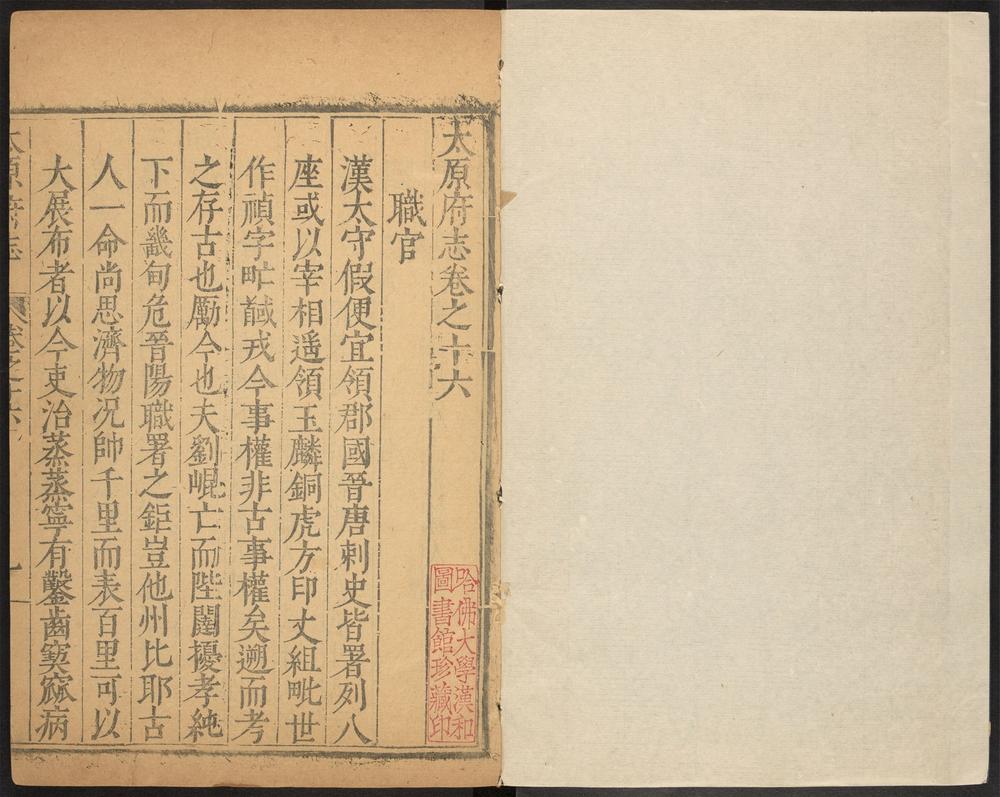 太原府志卷之十六
職官
漢太守假便宜領郡國晉唐刺史皆署列八
座或以宰相遥領玉麟銅虎方印丈組毗世
作禎字甿馘戎今事權非古事權矣遡而考
之存古也勵今也夫劉崐亡而陛闥擾孝純
下而畿甸危晉陽職署之鉅豈他州比耶古
人一命尚思濟物况帥千里而表百里可以
大展布者以今吏治蒸蒸寧有鑿齒窫窳病
太原府志
卷之十六
一
哈佛大學漢和
圖書館珍藏印